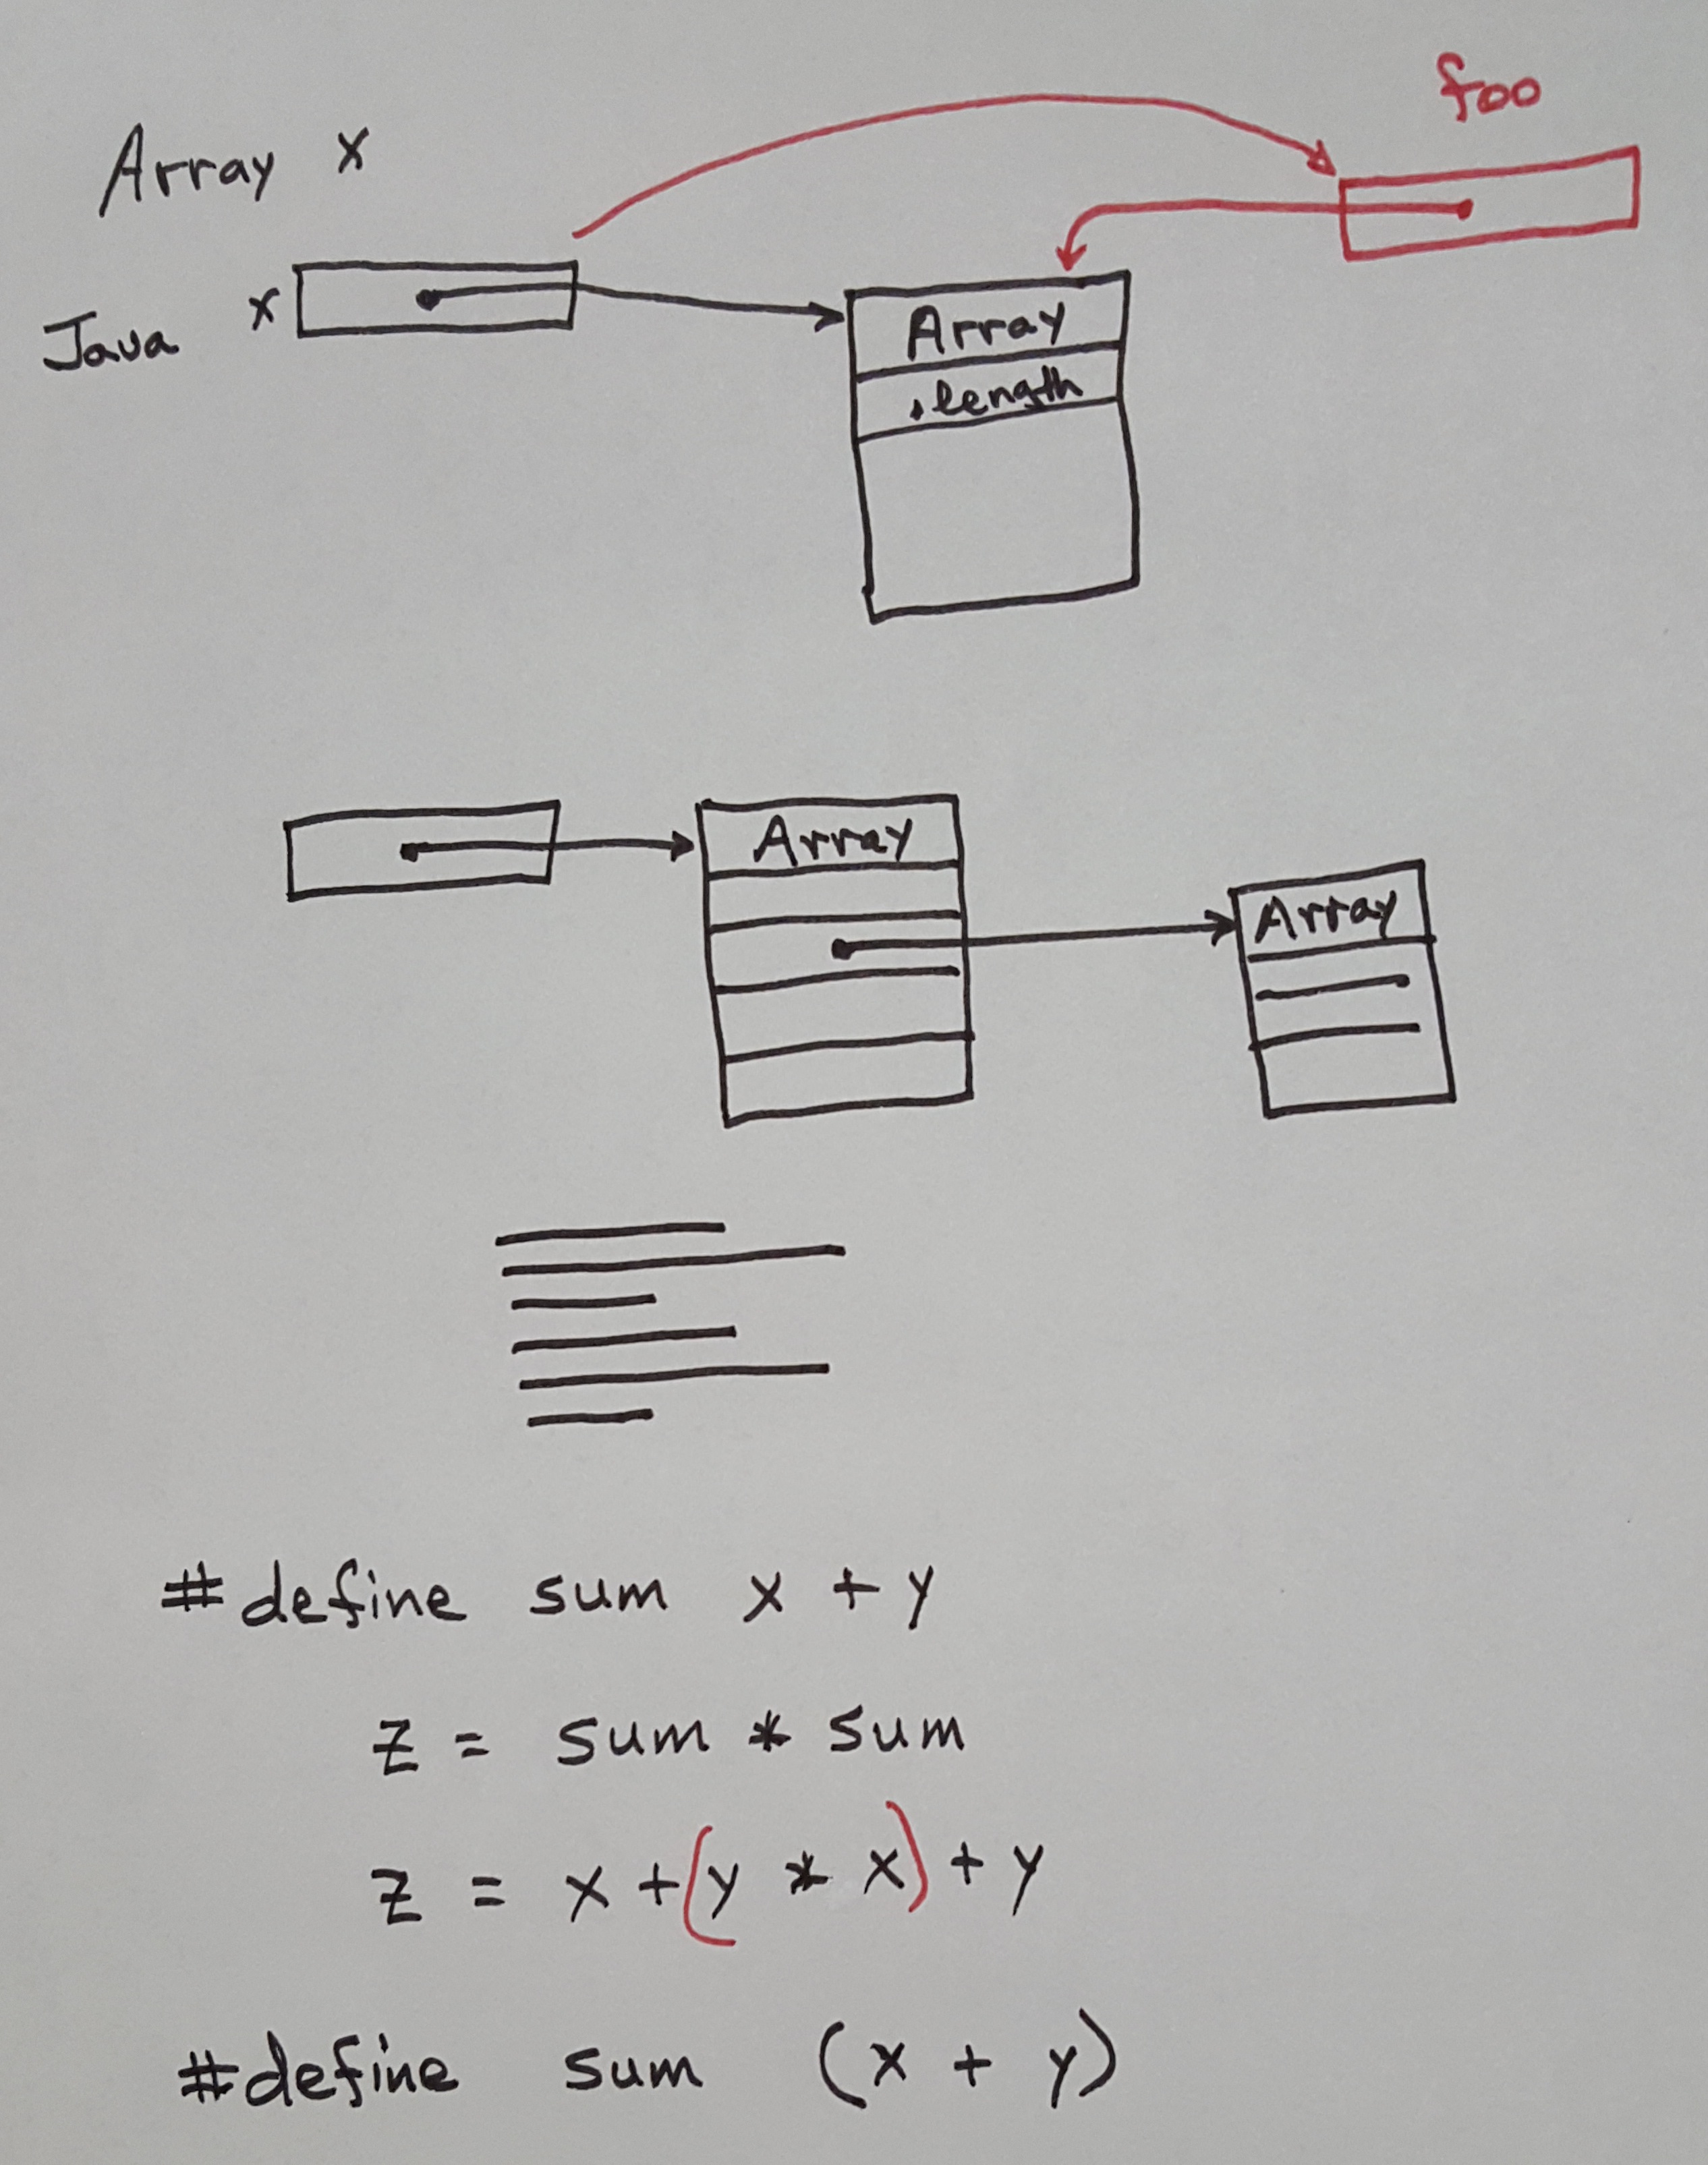 foo
Array x
Java x
Array
.length
Array
Array
#define sum x + y
z = sum * sum
z = x + (y * x) + y
#define sum (x + y)